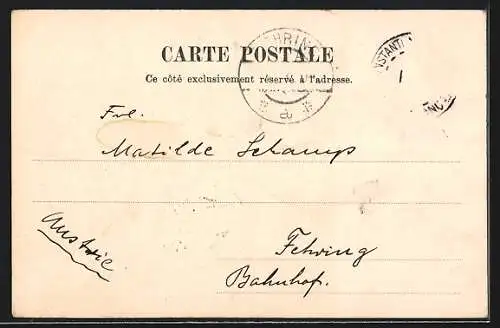 CARTE POSTALE
Ce côté exclusivement réservé à l'adresse.
Frl.
Matilde Schamps
Austrie
Fehring
Bahnhof.